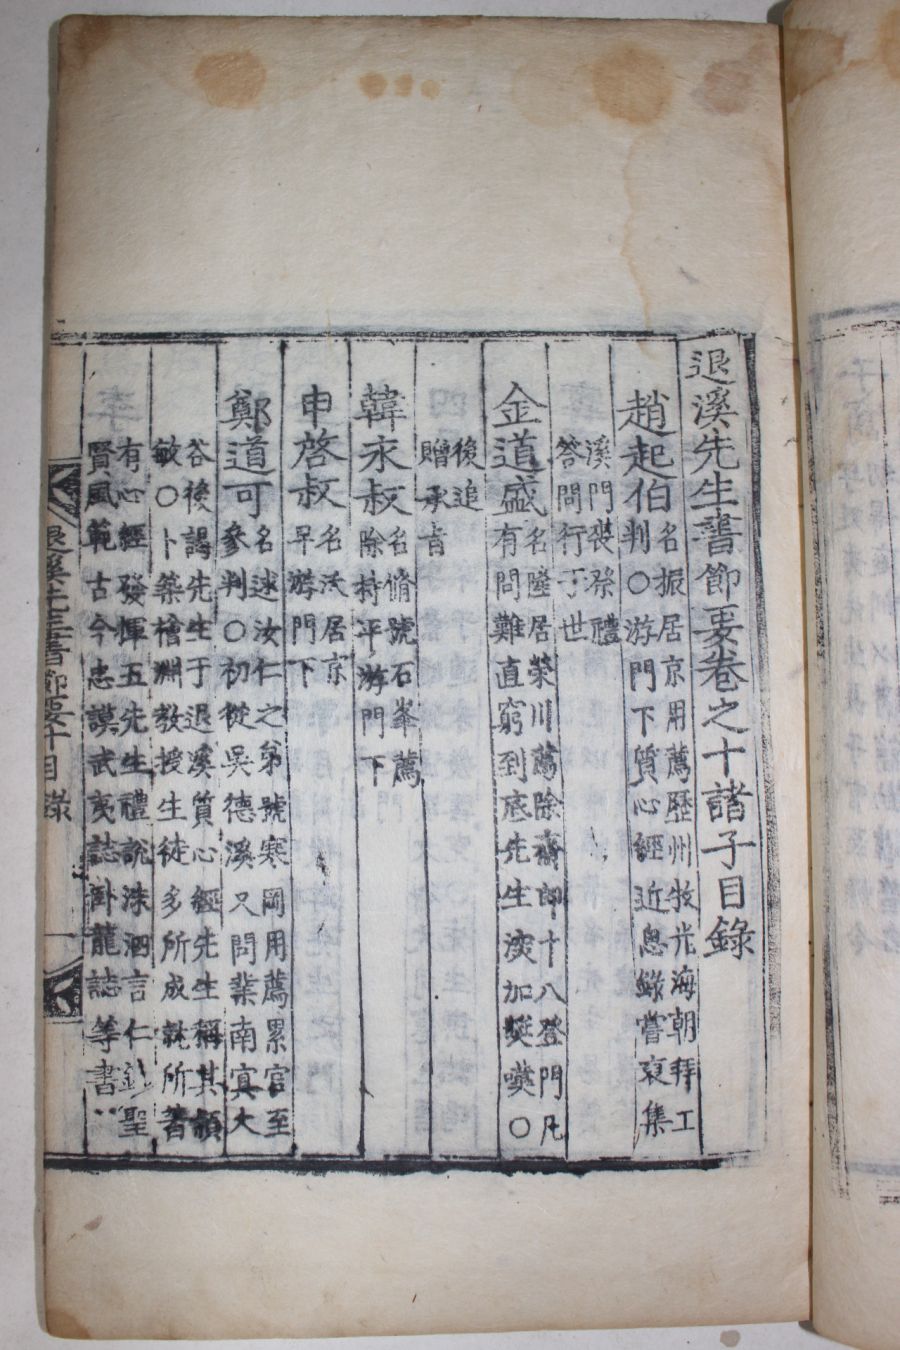 退溪先生書節要卷之十諸子目錄
趙起伯 名振居京用薦歷州牧光海朝拜工
判○游門下質心經近思錄嘗裒集
溪門喪祭禮
答問行于世
金道盛 名隆居榮川薦除齋郞十八登門凡
有問難直窮到底先生深加奬嘆○
後追
贈承旨
韓永叔 名脩號石峯薦
除持平游門下
申啓叔 名沃居京
早游門下
鄭道可 名逑汝仁之弟號寒岡用薦累官至
參判○初從吳德溪又問業南冥大
谷後謁先生于退溪質心經先生稱其穎
敏○卜築檜淵敎授生徒多所成就所著
有心經發揮五先生禮說洙泗言仁錄聖
賢風範古今忠謨武夷誌卧龍誌等書
退溪先生書節要十目錄 一